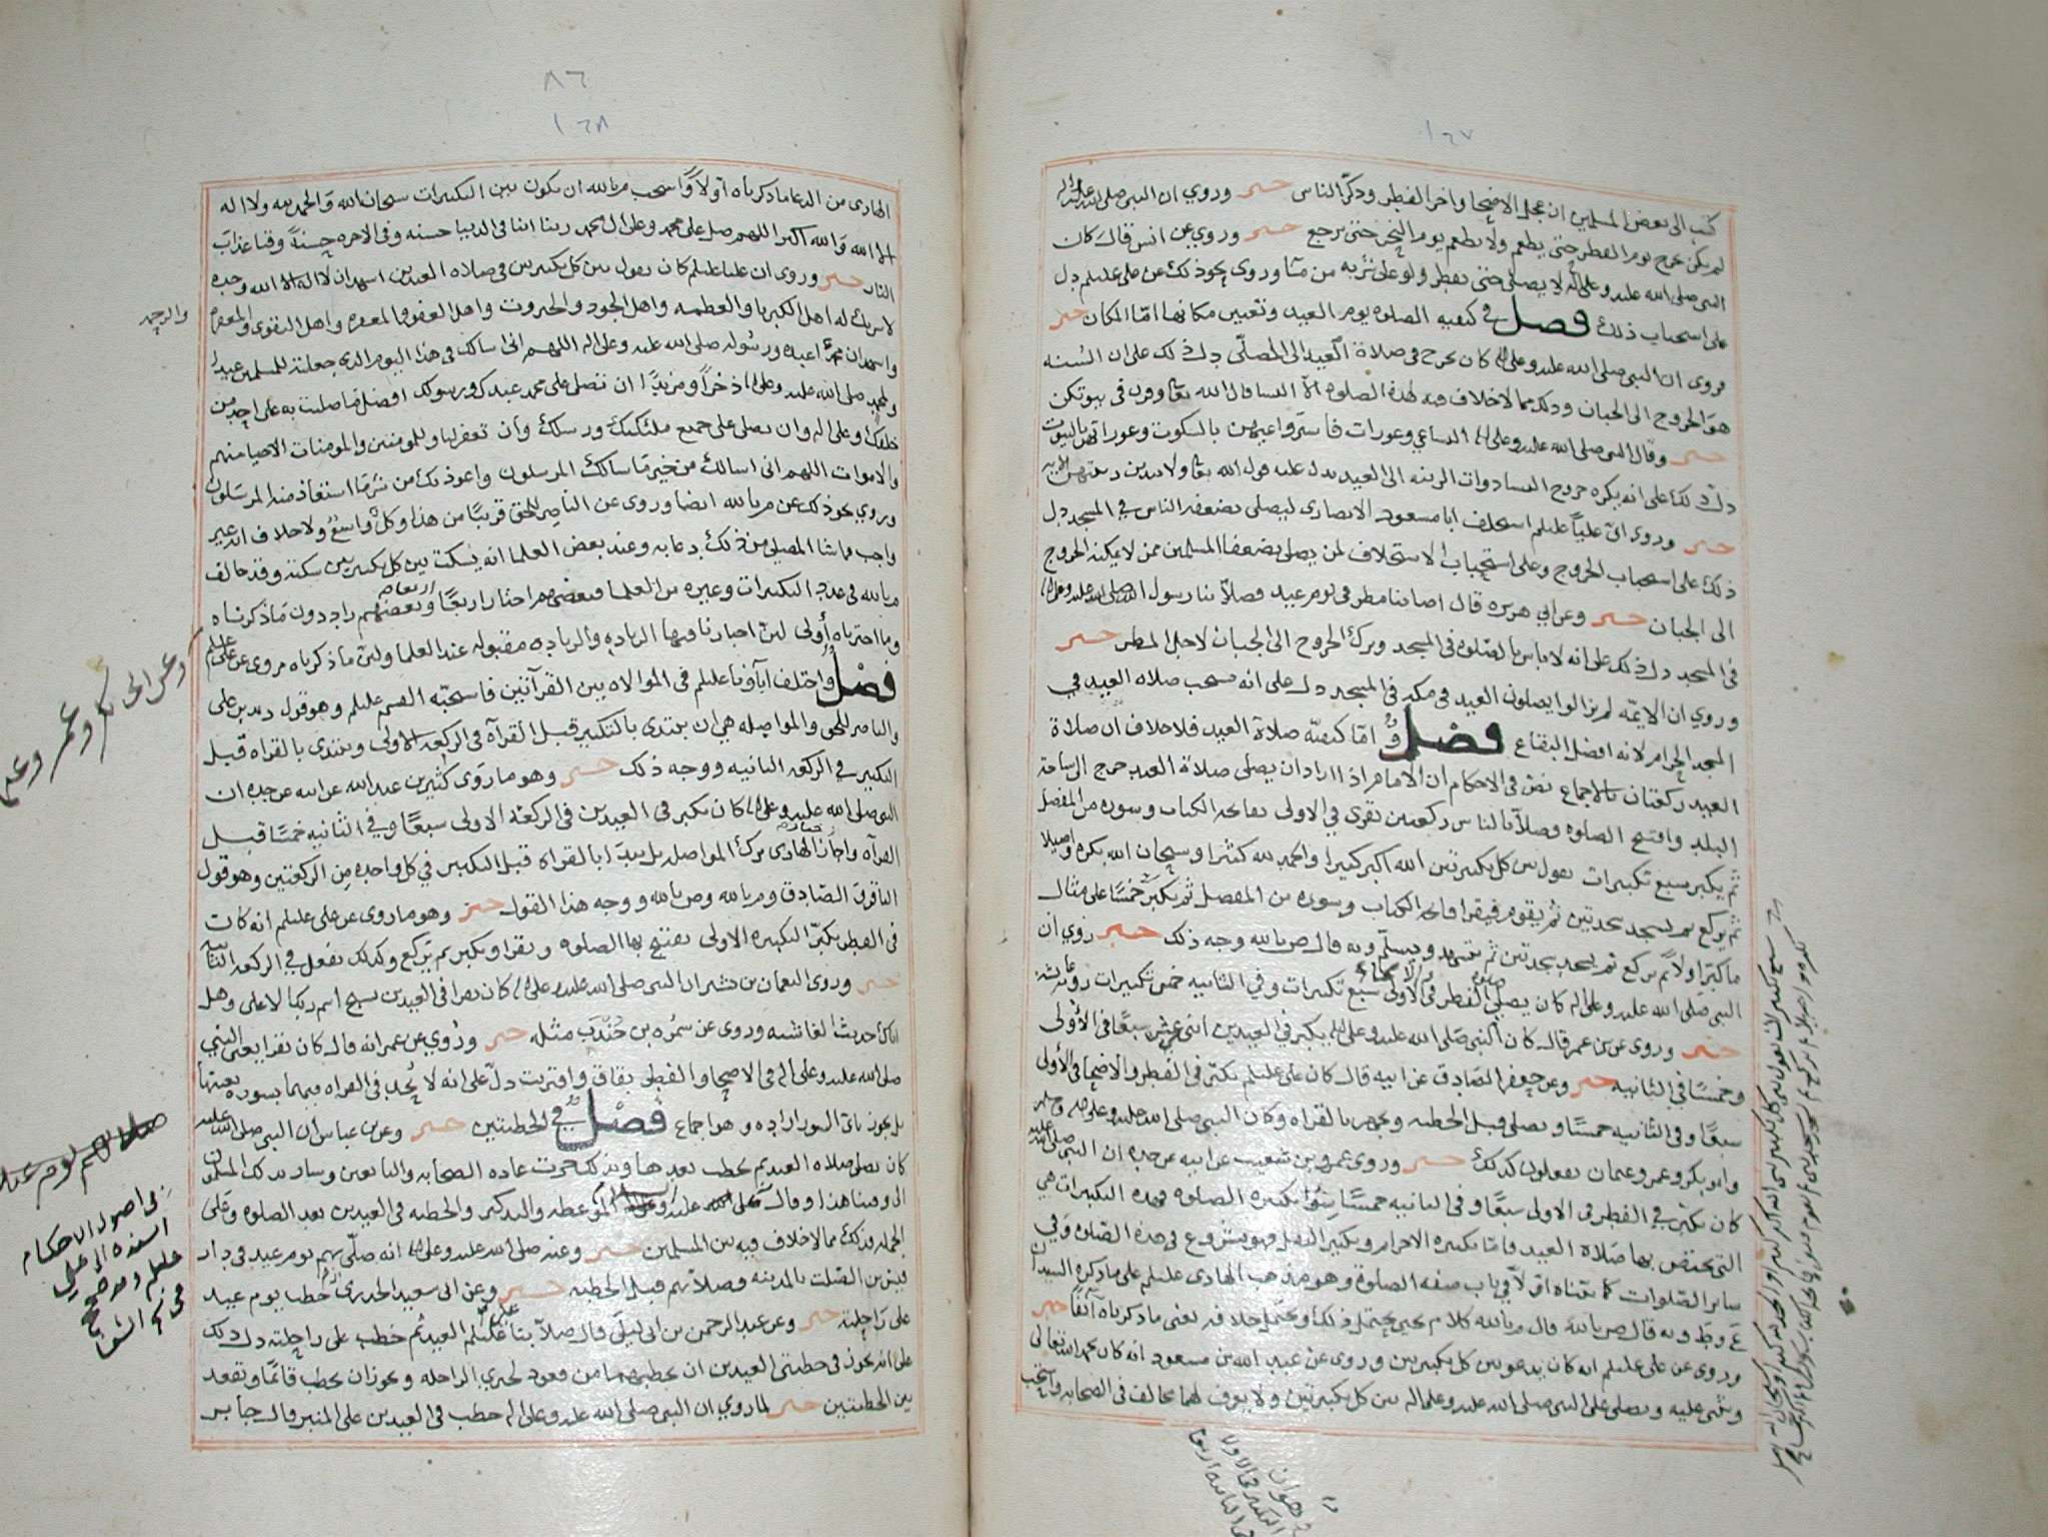 ١٦٧
كتب الى بعض المسلمين ان عجل الاضحا واخر الفطر وذكر الناس خبر وروي ان النبي صلى الله عليه واله
لم يكن يخرج يوم الفطر حتى يطعم ولا يطعم يوم النحر حتى يرجع خبر وروي عن انس قال كان
النبي صلى الله عليه وعلى اله لا يصلي حتى يفطر ولو على شربه من ماء وروي نحو ذلك عن علي عليلم دل
على استحباب ذلك فصل في كيفيه الصلوه يوم العيد وتعيين مكانها امّا المكان خبر
فروى ان النبي صلى الله عليه وعلى اله كان يخرج في صلاة العيد الى المصلّى دل ذلك على ان السُنه
هو الخروج الى الجبان وذلك مما لا خلاف فيه لهذه الصلوه الا النسا قال الله تعا وقرن في بيوتكن
خبر وقال النبي صلى الله عليه وعلى اله النسا عي وعورات فاستروا عيهن بالسكوت وعوراتهن بالبيوت
دل ذلك على انه يكره خروج النسا ذوات الزينه الى العيد يدل عليه قول الله تعا ولا يبدين زينتهن الايه
خبر وروي انّ علياً عليلم استخلف ابا مسعود الانصاري ليصلي بضعفه الناس في المسجد دل
ذلك على استحباب الخروج وعلى استحباب الاستخلاف لمن يصلي بضعفا المسلمين ممن لا يمكنه الخروج
الى الجبان خبر وعن ابي هريره قال اصابنا مطر في يوم عيد فصلا بنا رسول الله صلى الله عليه وعلى اله
في المسجد دل ذلك على انه لا باس بالصلوه في المسجد وترك الخروج الى الجبان لاجل المطر خبر
وروي ان الايمّه لم يزالوا يصلون العيد في مكه في المسجد دل على انه يستحب صلاه العيد في
المسجد الحرام لانه افضل البقاع فصل وامّا كيفيّه صلاة العيد فلا خلاف ان صلاة
العيد ركعتان بالاجماع نص في الاحكام ان الامام اذا اراد ان يصلي صلاة العيد خرج الى ساحة
البلد وافتتح الصلوه وصلا بالناس ركعتين يقرى في الاولى بفاتحه الكتاب وسوره من المفصل
ثم يكبر سبع تكبيرات يقول بين كل تكبيرتين الله اكبر كبيرا والحمد لله كثيرا وسبحان الله بكره واصيلا
ثم يركع ثم يسجد سجدتين ثم يقوم فيقرا فاتحه الكتاب وسوره من المفصل ثم يكبر خمسًا على مثال
ما كبر اولا ثم يركع ثم يسجد سجدتين ثم يتشهد ويسلّم وبه قال ص بالله وجه ذلك خبر روي ان
النبي صلى الله عليه وعلى اله كان يصلي الفطر في الاولى سبع تكبيرات وفي الثانيه خمس تكبيرات روته عايشه
خبر وروى عن بن عمر قال كان النبي صلى الله عليه وعلى اله يكبر في العيدين اثنى عشر سبعًا في الاولى
وخمسًا في الثانيه خبر وعن جعفر الصّادق عن ابيه قال كان علي عليلم يكبّر في الفطر والاضحا في الاولى
سبعًا وفي الثانيه خمسًا ويصلي قبل الخطبه ويجهر بالقراه وكان النبي صلى الله عليه وعلى اله وسلم
وابو بكر وعمر وعثمان يفعلون كذلك خبر وروى عمرو بن شعيب عن ابيه عن جده ان النبي صلى الله عليه
كان يكبّر في الفطر في الاولى سبعًا وفي الثانيه خمسًا سِوَى تكبيره الصلوه فهذه التكبيرات هي
التي يختص بها صلاة العيد فامّا تكبيره الاحرام وتكبير النقل فهو مشروع في هذه الصلوه وفي
ساير الصّلوات كما بيّناه اوّلاً في باب صفه الصلوة وهو مذهب الهادي عليلم على ما ذكره السيدان
ع وط وبه قال ص بالله قال م بالله كلام يحيى يحتمل ذلك ويحتمل خلافه يعني ما ذكرناه آنفًا خبر
وروى عن علي عليلم انه كان يدعو بين كل تكبيرتين وروى عن عبد الله بن مسعود انه كان يحمد الله تعالى
ويثني عليه ويصلي على النبي صلى الله عليه وعلى اله بين كل تكبيرتين ولا يعرف لهما مخالف في الصحابه واستحب
٨٦
١٦٨
الهادي من الدعا ما ذكرناه اولاً واستحب م بالله ان يكون بين التكبيرات سبحان الله والحمد لله ولا اله
الا الله والله اكبر اللهم صل على محمد وعلى ال محمد ربنا اتنا في الدنيا حسنه وفي الاخره حسنةً وقنا عذاب
النار خبر وروى ان عليا عليلم كان يقول بين كل تكبيرتين في صلاه العيدين اشهد ان لا اله الا الله وحده
لا شريك له اهل الكبريا والعظمه واهل الجود والجبروت واهل العفو والمغفره واهل التقوى والمغفره
والرحمه
واشهد ان محمدًا عبده ورسوله صلى الله عليه وعلى اله اللهم اني اسالك في هذا اليوم الذي جعلته للمسلمين عيدا
ولمحمد صلى الله عليه وعلى اله ذخراً ومزيدًا ان تصلي على محمد عبدك ورسولك افضل ما صليت به على احد من
خلقك وعلى اله وان تصلي على جميع ملئكتك ورسلك وأن تغفر لنا وللمومنين والمومنات الاحيا منهم
والاموات اللهم اني اسالك من خير ما سالك المرسلون واعوذ بك من شر ما استعاذ منه المرسلون
وروي نحو ذلك عن م بالله ايضا وروى عن الناصر للحق قريبًا من هذا وكلٌ واسعٌ ولا خلاف انه غير
واجب فما شا المصلي من ذلك دعا به وعند بعض العلما انه يسكت بين كل تكبيرتين سكتة وقد خالف
م بالله في عدد التكبيرات وغيره من العلما فبعضهم اختار اربعًا وبعضهم زاد دون ما ذكرناه
وما اخترناه أولى لانّ اخبارنا فيها الزياده والزياده مقبوله عند العلما ولانّ ما ذكرناه مروي عن علي عليلم
وعن ابي بكر وعمر وعثمان
فصل واختلف آباؤنا عليلم في الموالاه بين القرآتين فاستحبّه القسم عليلم وهو قول زيد بن علي
والناصر للحق والمواصله هي ان يبتدى بالتكبير قبل القرآه في الركعه الاولى ويبتدى بالقراه قبل
التكبير في الركعه الثانيه ووجه ذلك خبر وهو ما روَى كثير بن عبد الله عن ابيه عن جده ان
النبي صلى الله عليه وعلى اله كان يكبر في العيدين في الركعة الاولى سبعًا وفي الثانيه خمسًا قبل
القرآه واختار الهادي ترك المواصله بل يبدا بالقراه قبل التكبير في كل واحده من الركعتين وهو قول
الباقر والصّادق وم بالله وص بالله ووجه هذا القول خبر وهو ما روى عن علي عليلم انه كان
في الفطر يكبّر التكبيره الاولى يفتتح بها الصلوه ويقرا ويكبر ثم يركع وكذلك يفعل في الركعه الثانيه
خبر وروى النعمان بن بشير ان النبي صلى الله عليه وعلى اله كان يقرا في العيدين بسبح اسم ربك الاعلى وهل
اتاك حديث الغاشيه وروى عن سمُره بن جُنْدَب مثله خبر ورُوي عن عمر انه قال كان يقرا يعني النبي
صلى الله عليه وعلى اله في الاضحا والفطر بقاف واقتربت دلّ على انه لا يُحد في القراه فيهما بسوره بعينها
بل يجوز باي السور اراده وهو اجماع فصل في الخطبتين خبر وعن بن عباس ان النبي صلى الله عليه
كان يصلي صلاه العيد ثم يخطب بعدها وبذلك جرت عاده الصحابه والتابعين وسار بذلك المسلمون
الى وقتنا هذا وقال علي عليه الموعظه والتذكير والخطبه في العيدين بعد الصلوه وعلى
الجمله فذلك مما لا خلاف فيه بين المسلمين خبر وعنه صلى الله عليه وعلى اله انه صلّى بهم يوم عيد في دار
قيس بن الصّلت بالمدينه وصلا بهم قبل الخطبه خبر وعن ابي سعيد الخدري انه خطب يوم عيد
على رَاحِلته خبر وعن عبد الرحمن بن ابي ليلى قال صلّا بنا علي عليلم العيد ثم خطب على راحِلته دل ذلك
على انه يجوز في خطبتي العيدين ان يخطبهما من قعود لخبري الراحله ويجوز ان يخطب قائمًا ويقعد
بين الخطبتين خبر لما روي ان النبي صلى الله عليه وعلى اله خطب في العيدين على المنبر وقال جابر
في اصول الاحكام